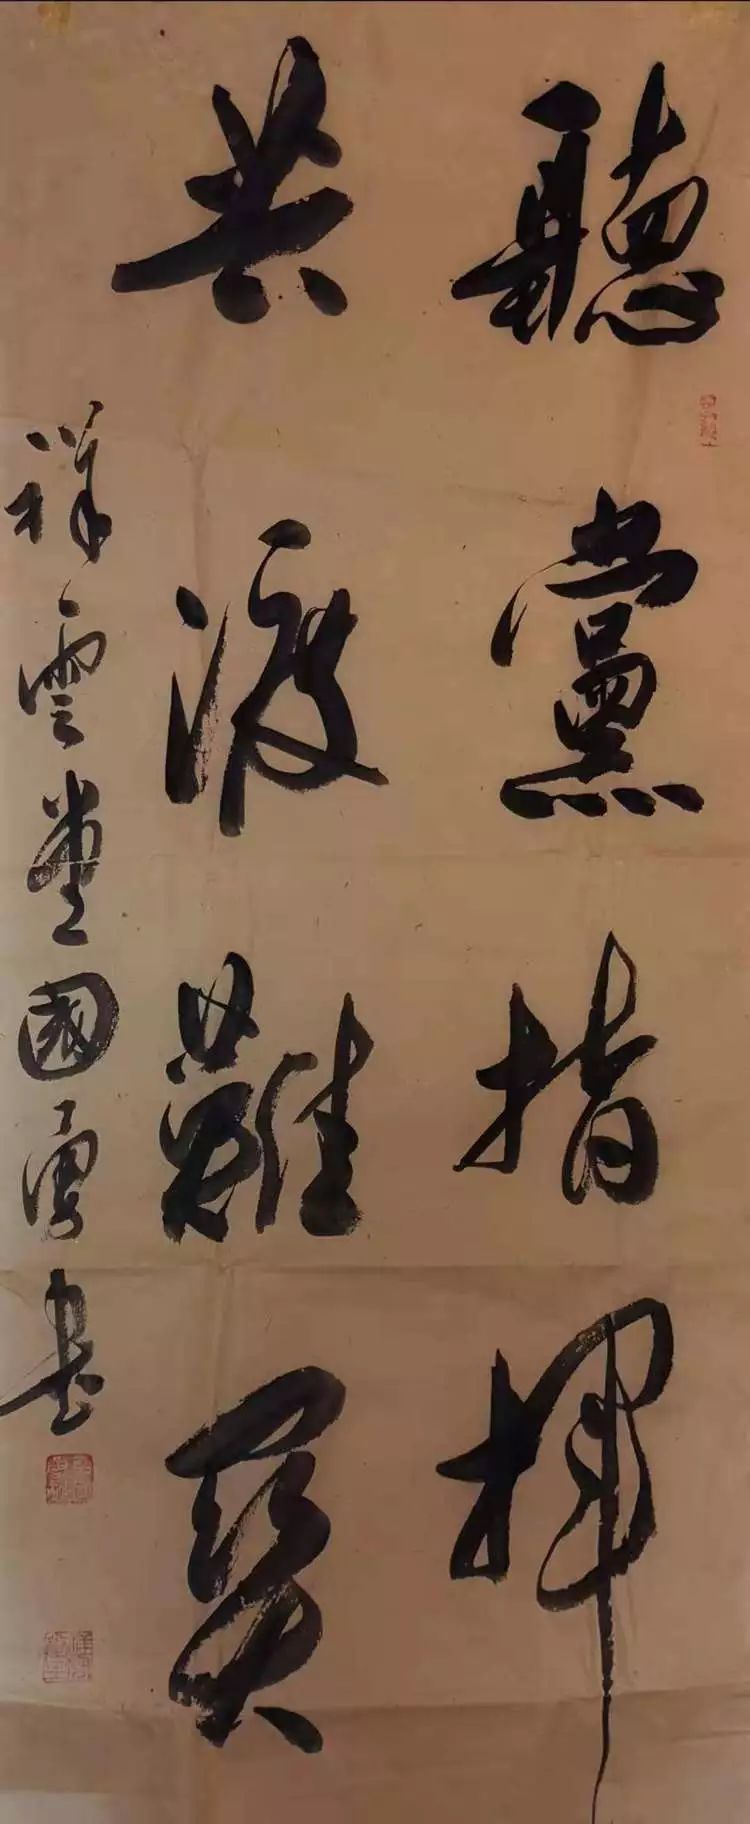 聽黨指揮
共渡難關
祥雲堂國勇書